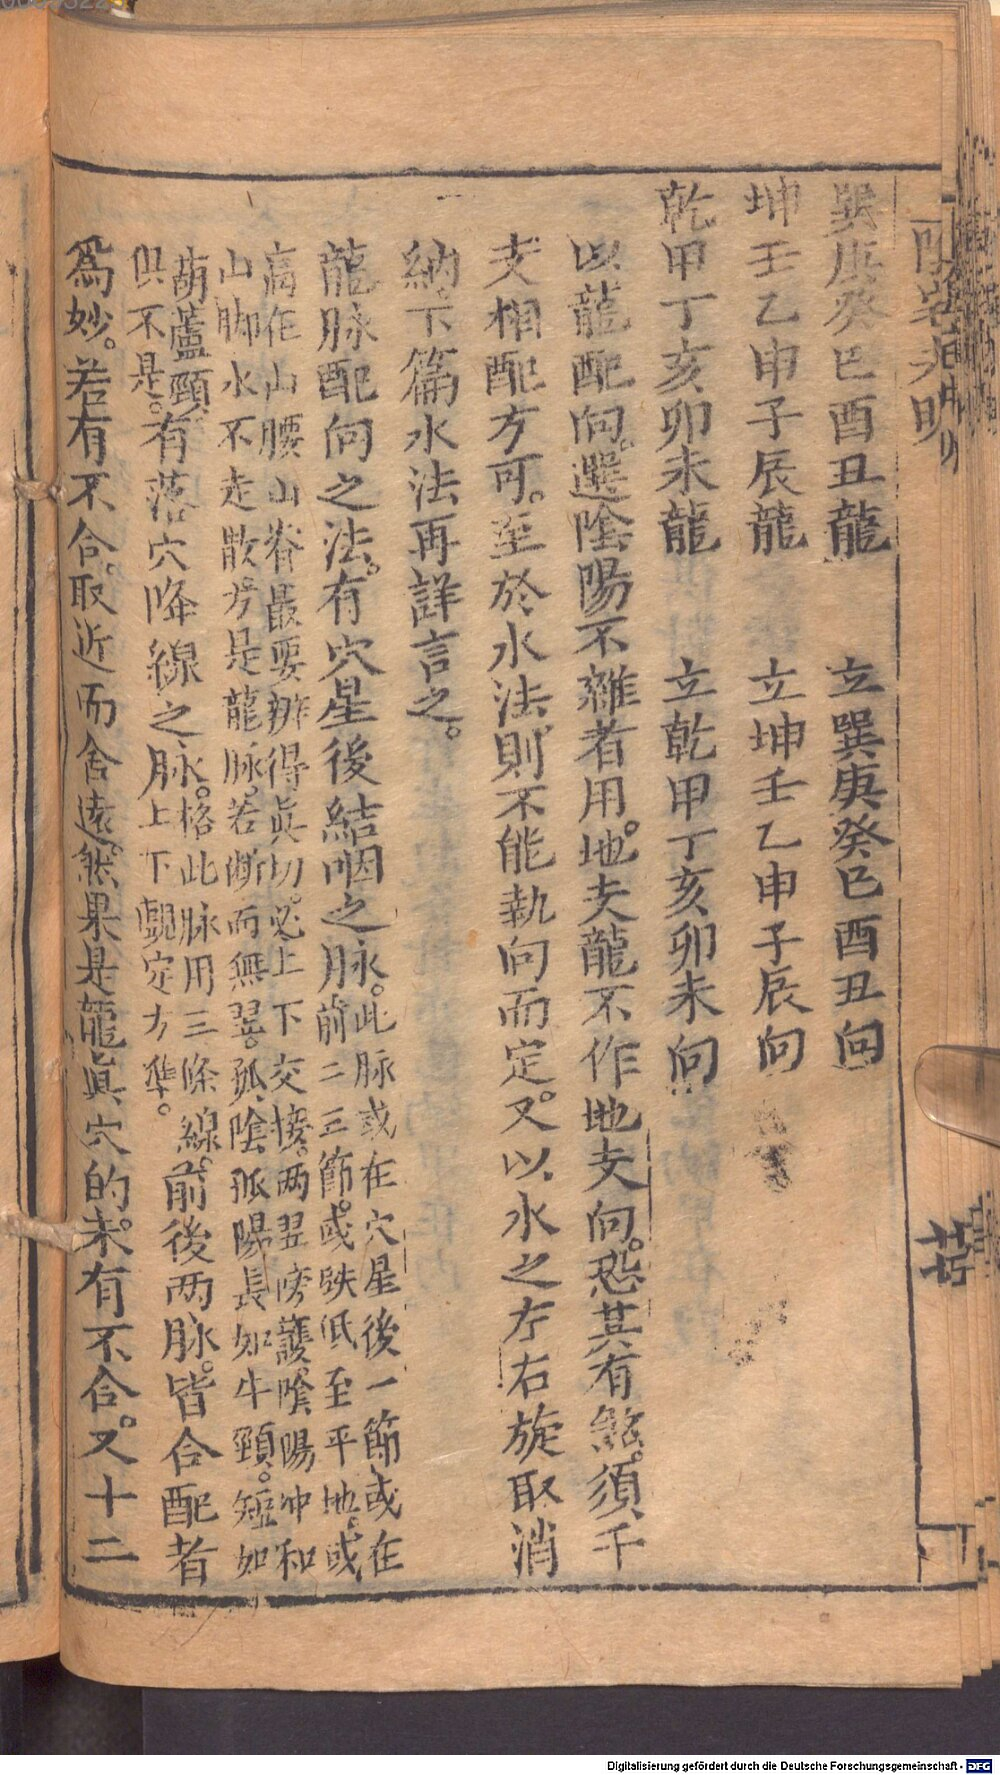 巽庚癸巳酉丑龍　立巽庚癸巳酉丑向
坤壬乙申子辰龍　立坤壬乙申子辰向
乾甲丁亥卯未龍　立乾甲丁亥卯未向
以龍配向。選陰陽不雜者用。地支龍不作地支向。恐其有煞。須干
支相配方可。至於水法則不能執向而定。又以水之左右旋取消
納。下篇水法再詳言之。
龍脉配向之法。有穴星後結咽之脉。此脉或在穴星後一節或在
前二三節。或跌低至平地。或
高作山腰山脊最要辨得真切。必上下交接。两翌傍護陰陽冲和
山脚水不走散方是龍脉。若断而無翌。孤陰孤陽長如牛頸。短如
葫蘆頸
俱不是。有落穴降線之脉。格此脉用三條線。
上下覷定方準。前後两脉。皆合配者
為妙。若有不合。取近而舍遠。然果是龍眞穴的。未有不合。又十二
Digitalisierung gefördert durch die Deutsche Forschungsgemeinschaft - DFG